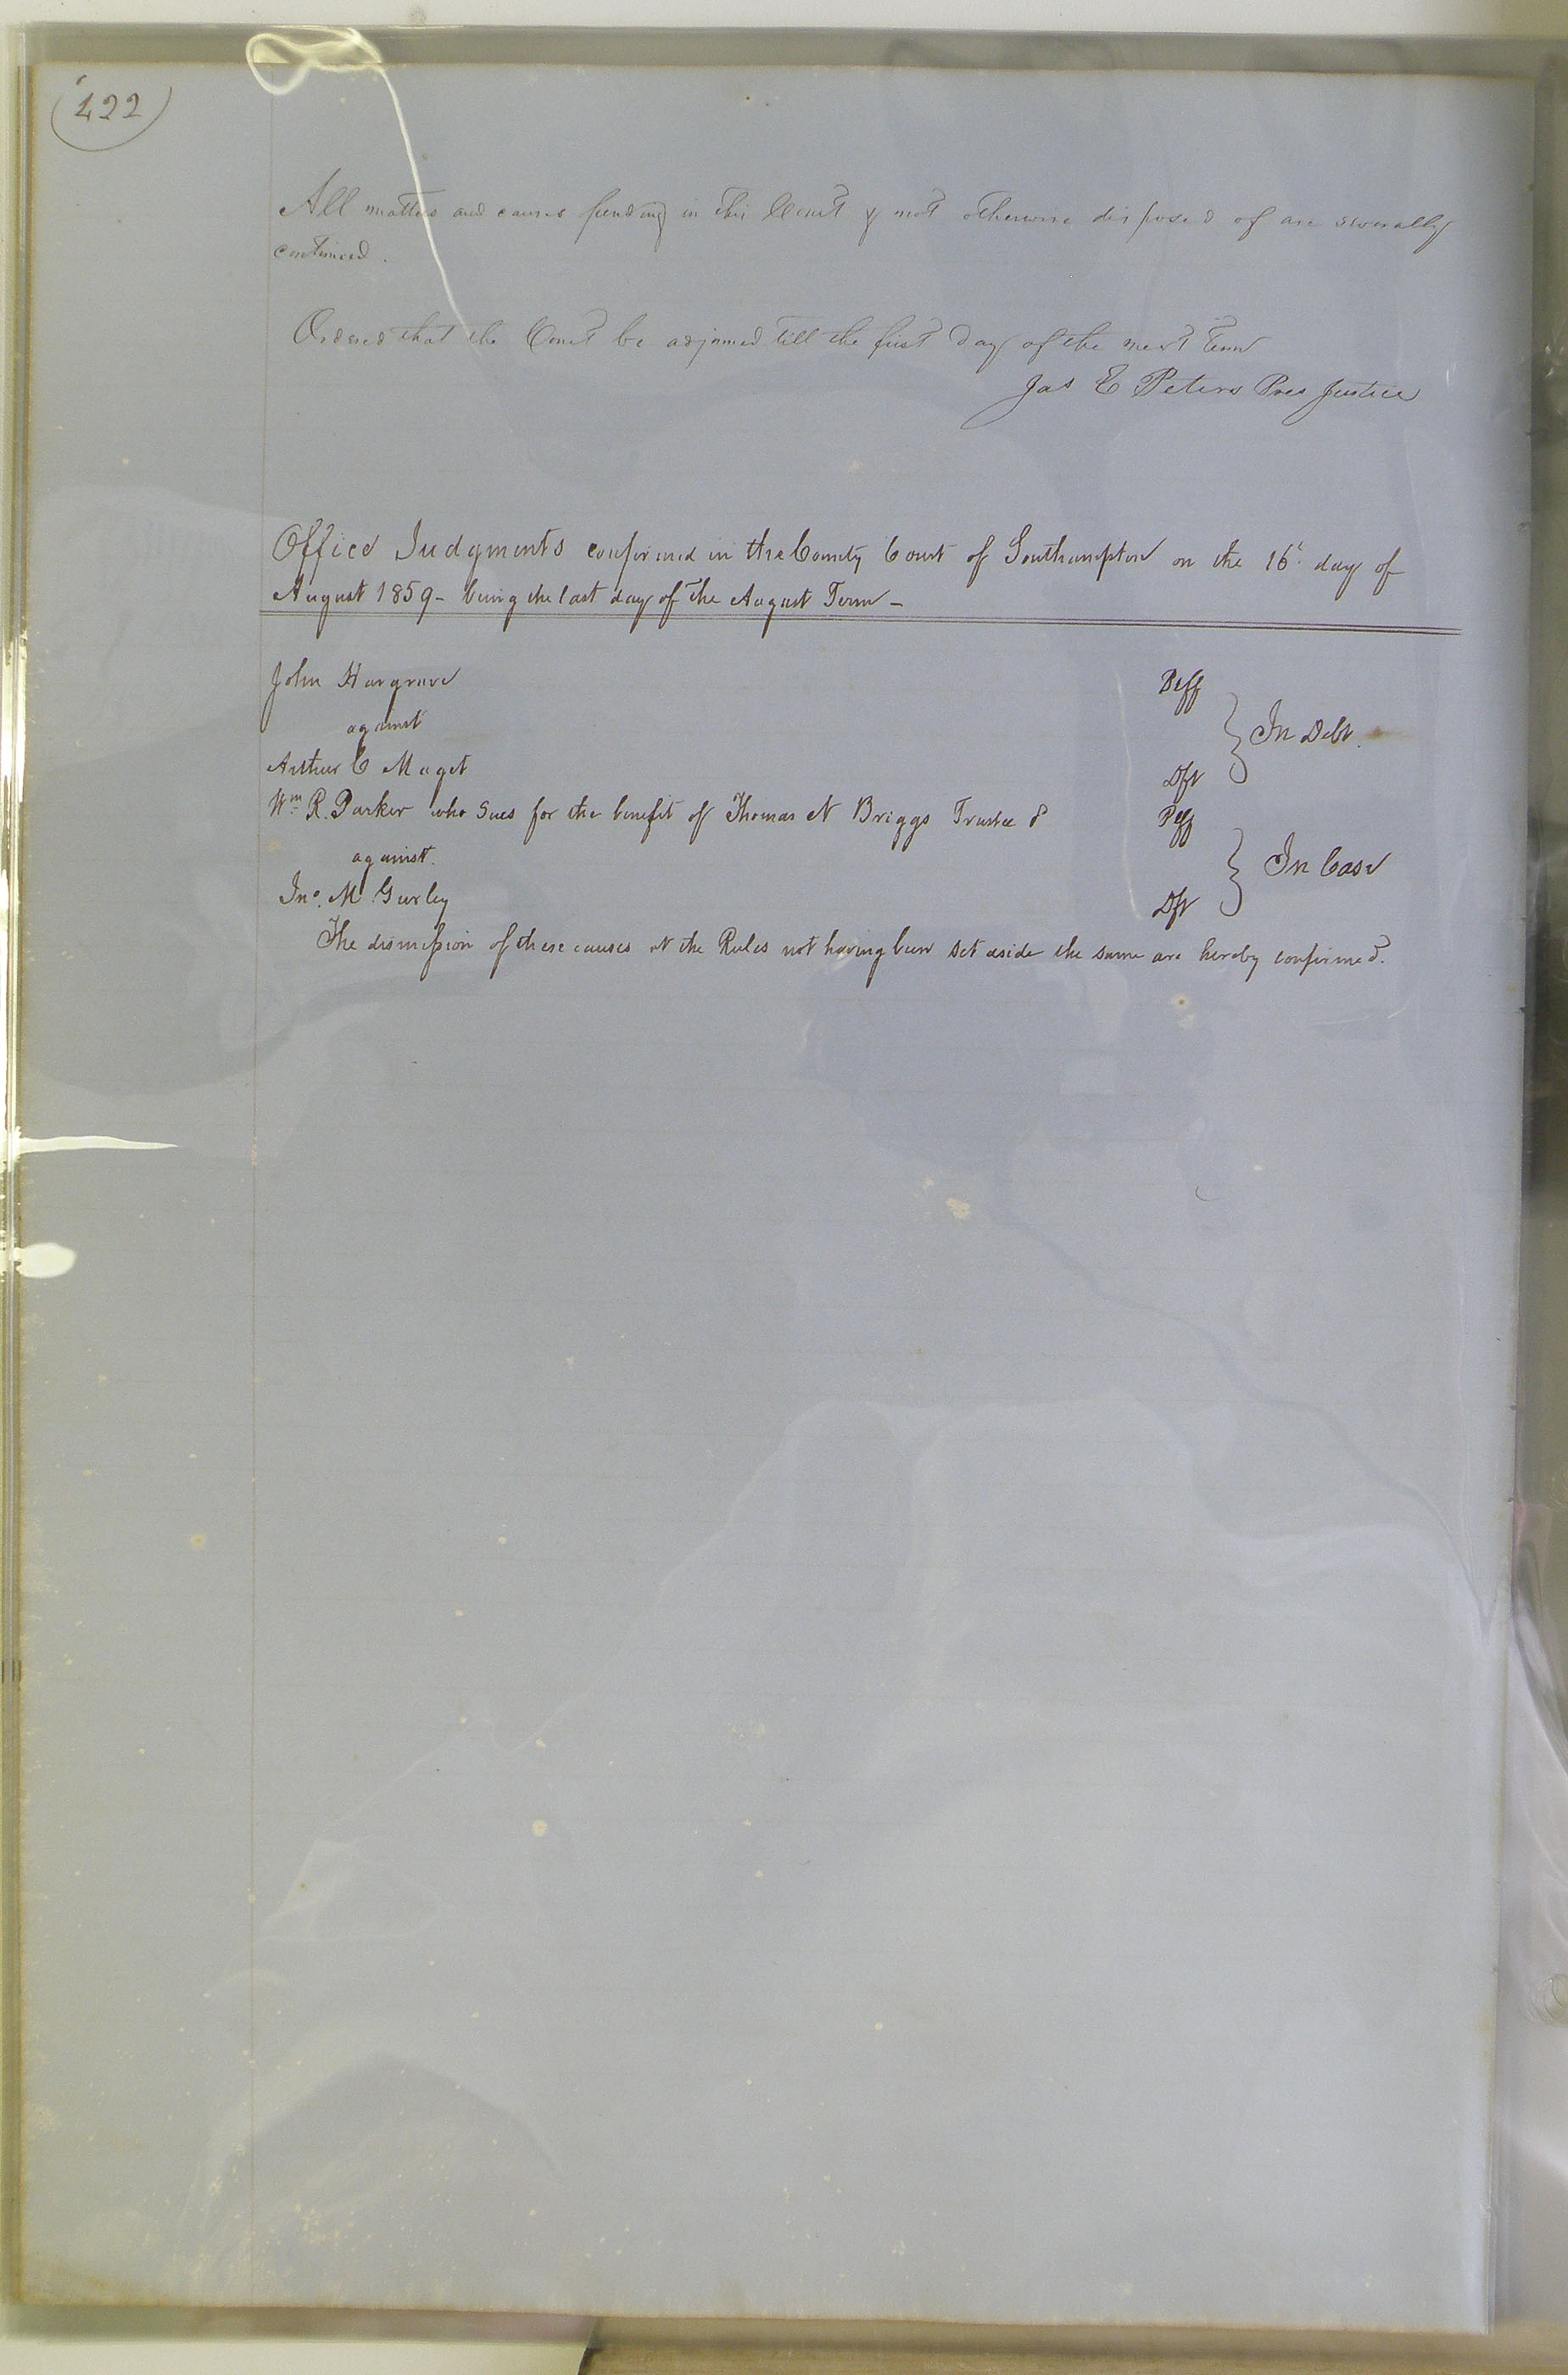 422
All matters and causes pending in this Court & not otherwise disposed of are severally
continued.
Ordered that the Court be adjorned till the first day of the next Term
Jas E Peters Pres Justice
Office Judgments confirmed in the County Court of Southampton on the 16' day of
August 1859 - being the last day of the August Term -
John Hargrave Plff
against In Debt.
Arthur C Maget Dft
Wm R. Parker who sues for the benefit of Thomas N Briggs Trustee & Plff
against. In Case
Jno. M Gurley Dft
The dismission of these causes at the Rules not having been set aside the same are hereby confirmed.